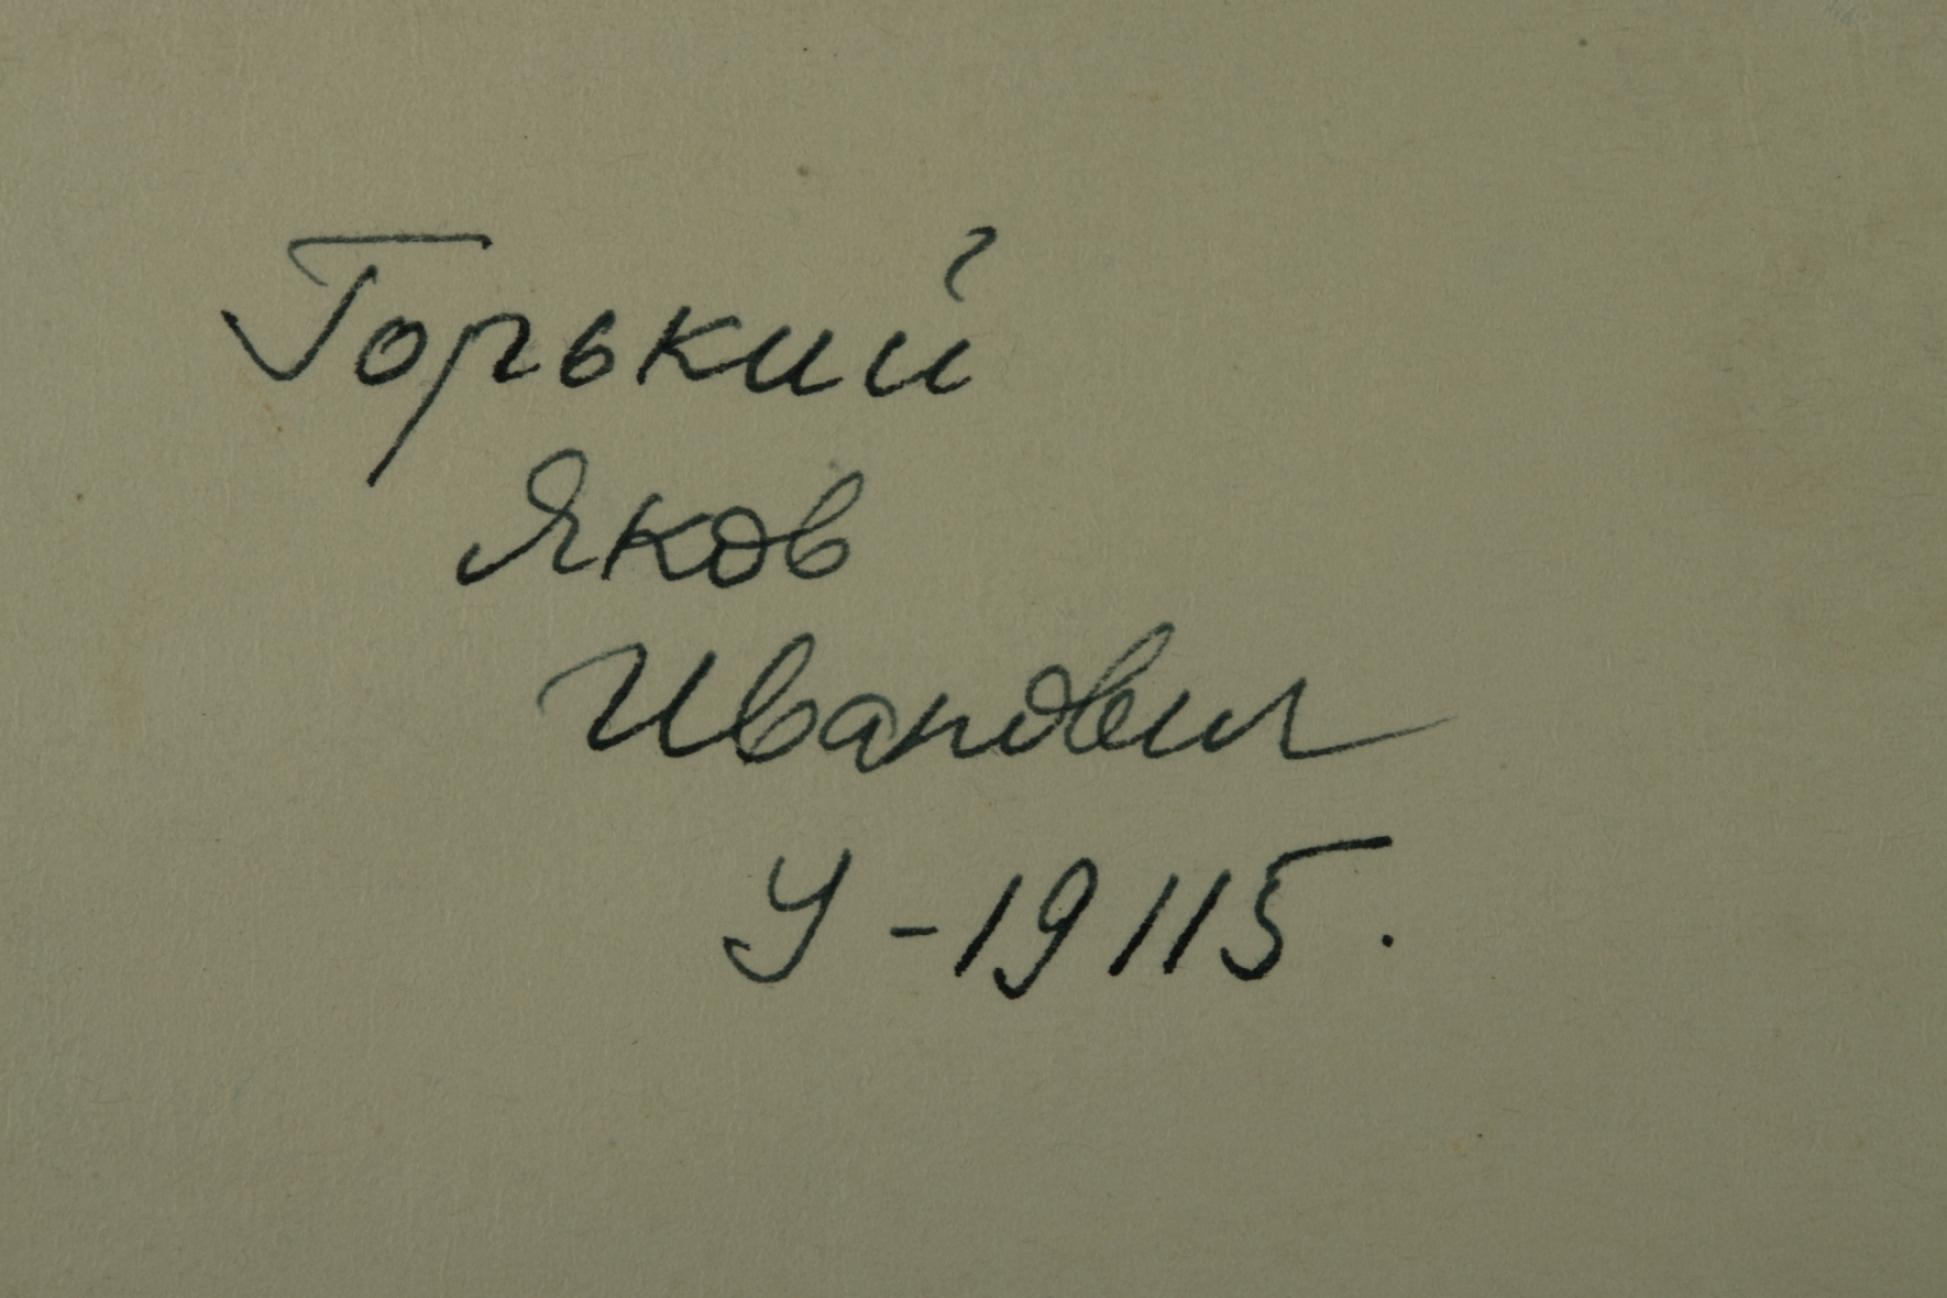 Горький
Яков
Иванович
У-19115.